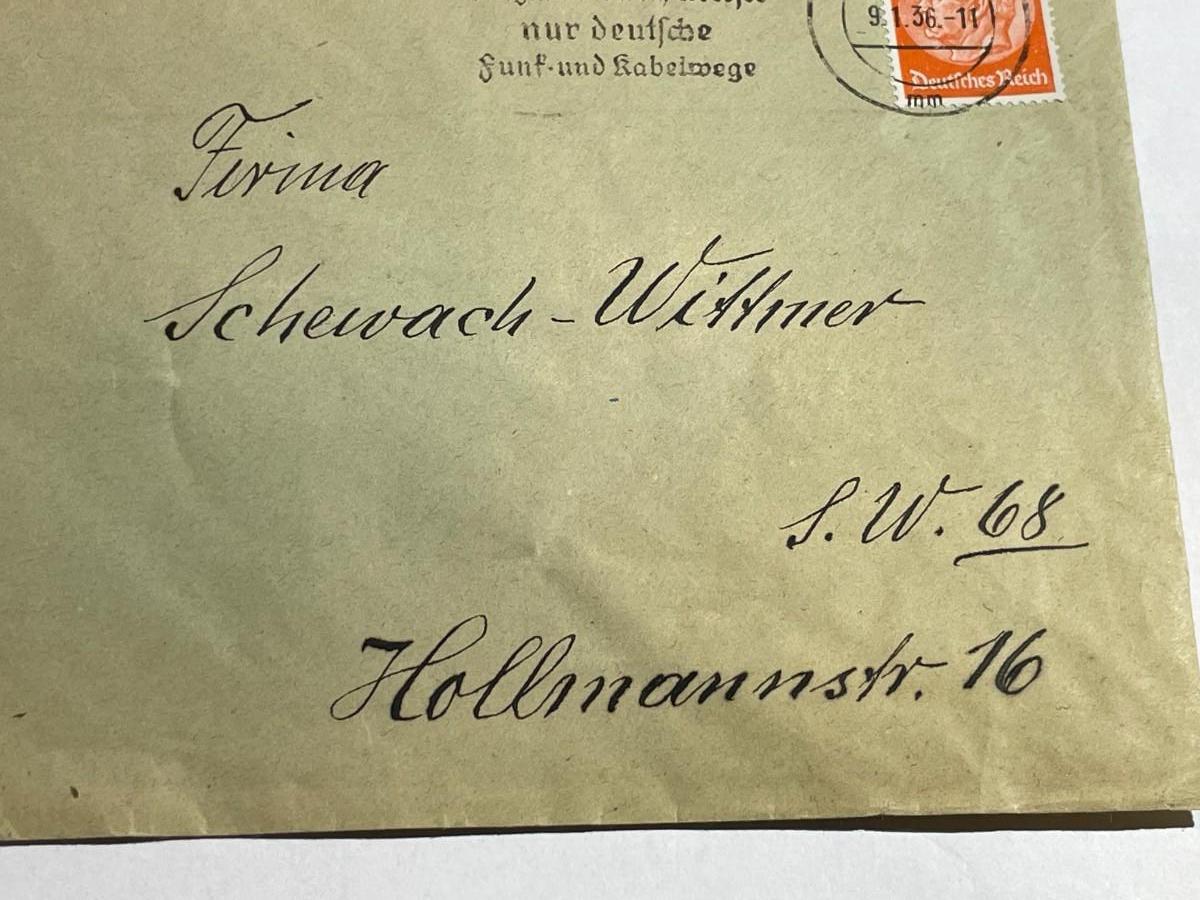 nur deutsche
Funk-und Kabelwege
9.1.36.-11
Deutsches Reich
mm
Firma
Schewach-Wittmer
S. W. 68
Hollmannstr. 16